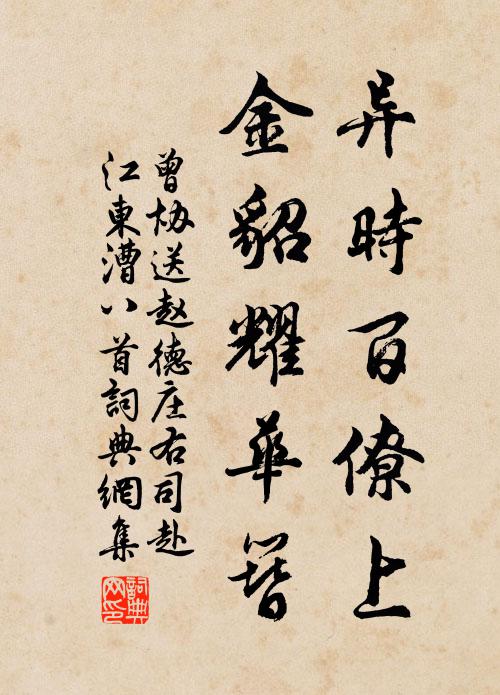 异時百僚上
金貂耀華簪
曾协送赵德庄右司赴
江東漕八首詞典網集
詞典
网印